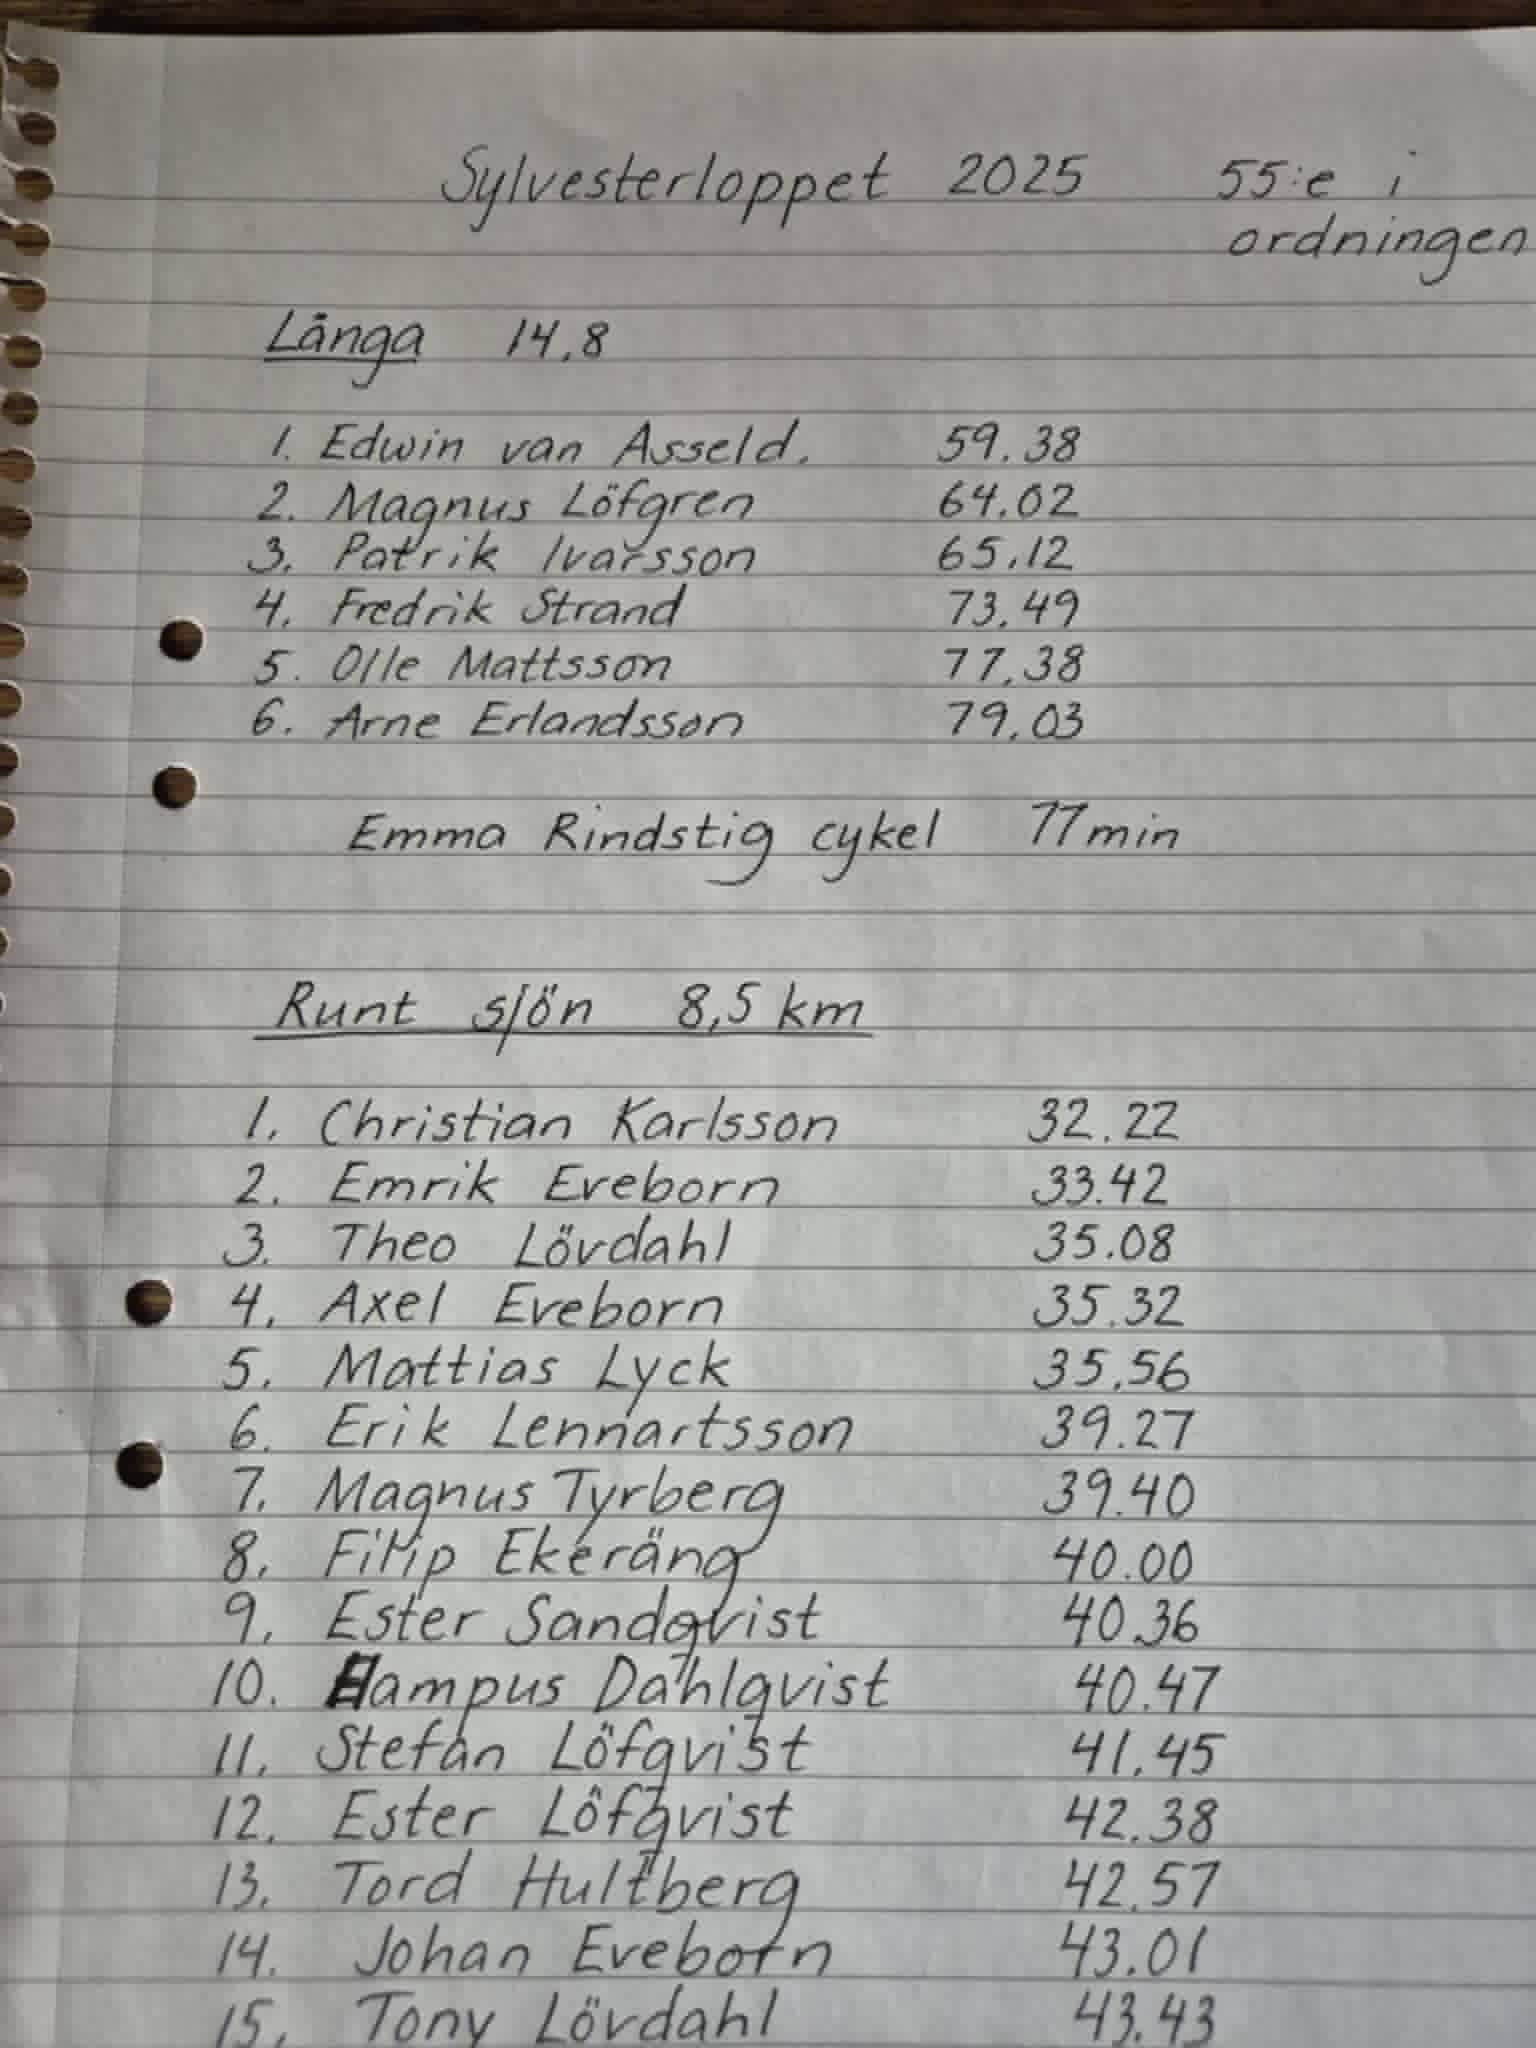 Sylvesterloppet 2025 55:e i
ordningen
Långa 14,8
1. Edwin van Asseld. 59.38
2. Magnus Löfgren 64.02
3. Patrik Ivarsson 65.12
4. Fredrik Strand 73.49
5. Olle Mattsson 77.38
6. Arne Erlandsson 79.03
Emma Rindstig cykel 77 min
Runt sjön 8,5 km
1. Christian Karlsson 32.22
2. Emrik Eveborn 33.42
3. Theo Lövdahl 35.08
4. Axel Eveborn 35.32
5. Mattias Lyck 35.56
6. Erik Lennartsson 39.27
7. Magnus Tyrberg 39.40
8. Filip Ekeräng 40.00
9. Ester Sandqvist 40.36
10. Hampus Dahlqvist 40.47
11. Stefan Löfqvist 41.45
12. Ester Löfqvist 42.38
13. Tord Hultberg 42.57
14. Johan Eveborn 43.01
15. Tony Lövdahl 43.43